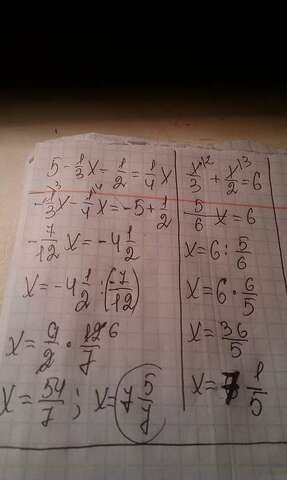 5 - 1/3 x - 1/2 = 1/4 x
-1/3 x - 1/4 x = -5 + 1/2
-7/12 x = -4 1/2
x = -4 1/2 : (-7/12)
x = 9/2 · 12/7 6
x = 54/7 ; x = 7 5/7
x/3 \2 + x/2 \3 = 6
5/6 x = 6
x = 6 : 5/6
x = 6 · 6/5
x = 36/5
x = 7 1/5